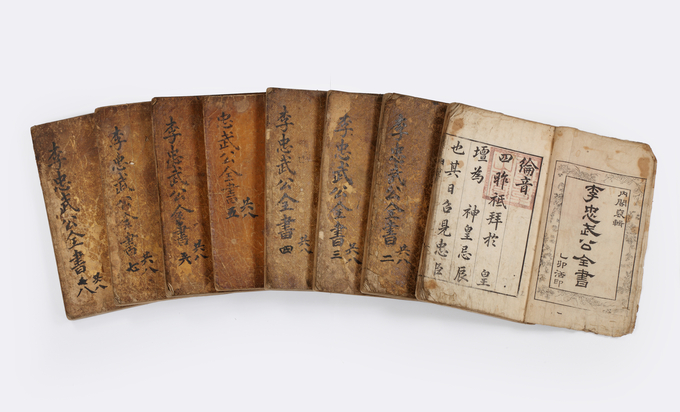 內閣裒輯
李忠武公全書
乙卯活印
綸音
四 昨祗拜於 皇
壇為 神皇忌辰
也其日召見忠臣
李忠武公全書 二
共八
李忠武公全書 三
共八
李忠武公全書 四
共八
忠武公全書 五
共八
李忠武公全書 六
共八
李忠武公全書 七
共八
李忠武公全書 八
共八